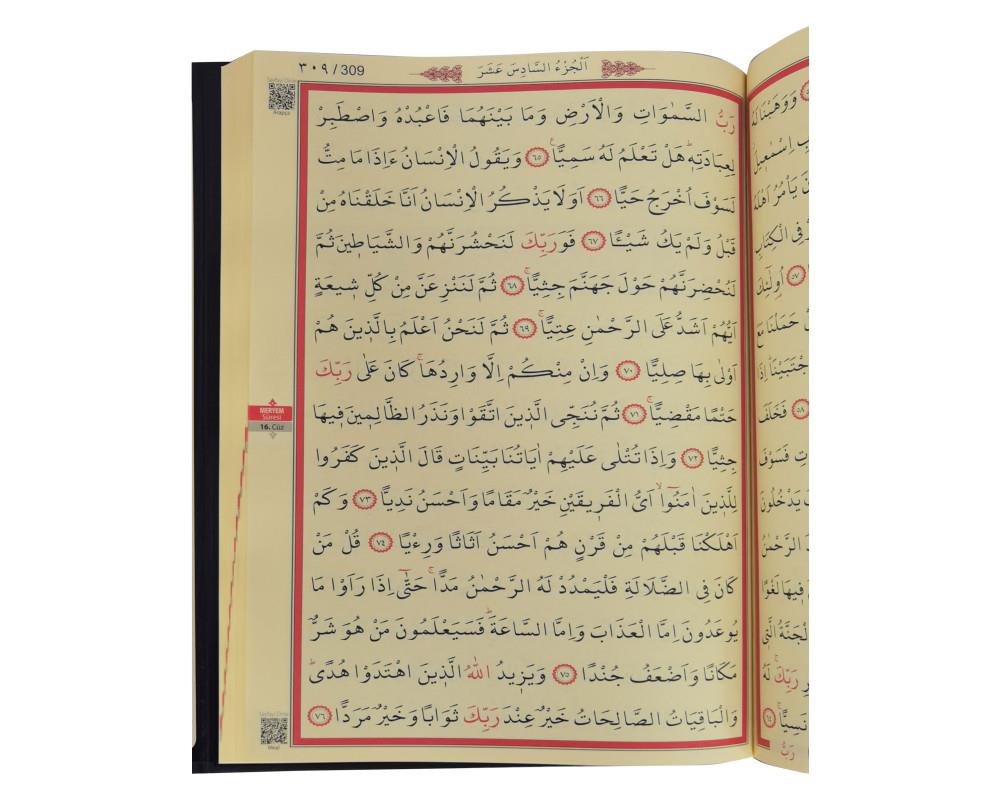 ٣٠٩ / 309
اَلْجُزْءُ السَّادِسَ عَشَرَ
رَبُّ السَّمٰوَاتِ وَالْاَرْضِ وَمَا بَيْنَهُمَا فَاعْبُدْهُ وَاصْطَبِرْ
لِعِبَادَتِهٖۜ هَلْ تَعْلَمُ لَهُ سَمِيًّاۚ ﴿٦٥﴾ وَيَقُولُ الْاِنْسَانُ ءَاِذَا مَا مِتُّ
لَسَوْفَ اُخْرَجُ حَيًّا ﴿٦٦﴾ اَوَلَا يَذْكُرُ الْاِنْسَانُ اَنَّا خَلَقْنَاهُ مِنْ
قَبْلُ وَلَمْ يَكُ شَيْـًٔا ﴿٦٧﴾ فَوَرَبِّكَ لَنَحْشُرَنَّهُمْ وَالشَّيَاطٖينَ ثُمَّ
لَنُحْضِرَنَّهُمْ حَوْلَ جَهَنَّمَ جِثِيًّاۚ ﴿٦٨﴾ ثُمَّ لَنَنْزِعَنَّ مِنْ كُلِّ شٖيعَةٍ
اَيُّهُمْ اَشَدُّ عَلَى الرَّحْمٰنِ عِتِيًّاۚ ﴿٦٩﴾ ثُمَّ لَنَحْنُ اَعْلَمُ بِالَّذٖينَ هُمْ
اَوْلٰى بِهَا صِلِيًّا ﴿٧٠﴾ وَاِنْ مِنْكُمْ اِلَّا وَارِدُهَاۚ كَانَ عَلٰى رَبِّكَ
حَتْمًا مَقْضِيًّاۚ ﴿٧١﴾ ثُمَّ نُنَجِّي الَّذٖينَ اتَّقَوْا وَنَذَرُ الظَّالِمٖينَ فٖيهَا
جِثِيًّا ﴿٧٢﴾ وَاِذَا تُتْلٰى عَلَيْهِمْ اٰيَاتُنَا بَيِّنَاتٍ قَالَ الَّذٖينَ كَفَرُوا
لِلَّذٖينَ اٰمَنُٓواۙ اَيُّ الْفَرٖيقَيْنِ خَيْرٌ مَقَامًا وَاَحْسَنُ نَدِيًّا ﴿٧٣﴾ وَكَمْ
اَهْلَكْنَا قَبْلَهُمْ مِنْ قَرْنٍ هُمْ اَحْسَنُ اَثَاثًا وَرِءْيًا ﴿٧٤﴾ قُلْ مَنْ
كَانَ فِي الضَّلَالَةِ فَلْيَمْدُدْ لَهُ الرَّحْمٰنُ مَدًّاۚ حَتّٰٓى اِذَا رَاَوْا مَا
يُوعَدُونَ اِمَّا الْعَذَابَ وَاِمَّا السَّاعَةَۜ فَسَيَعْلَمُونَ مَنْ هُوَ شَرٌّ
مَكَانًا وَاَضْعَفُ جُنْدًا ﴿٧٥﴾ وَيَزٖيدُ اللّٰهُ الَّذٖينَ اهْتَدَوْا هُدًىۜ
وَالْبَاقِيَاتُ الصَّالِحَاتُ خَيْرٌ عِنْدَ رَبِّكَ ثَوَابًا وَخَيْرٌ مَرَدًّا ﴿٧٦﴾
MERYEM
Sûresi
16. Cüz
Arapça
Meal
وَوَهَبْنَا لَهُ
اِسْمٰعٖيلَ
يَأْمُرُ اَهْلَهُ
فِي الْكِتَابِ
﴿٥٧﴾ اُولٰٓئِكَ
حَمَلْنَا مَعَ
اِذَا
﴿٥٨﴾ فَخَلَفَ
فَسَوْفَ
يَدْخُلُونَ
الرَّحْمٰنُ
فٖيهَا لَغْوًا
الْجَنَّةُ الَّتٖي
رَبِّكَۚ لَهُ
نَسِيًّاۚ ﴿٦٤﴾
رَبُّ